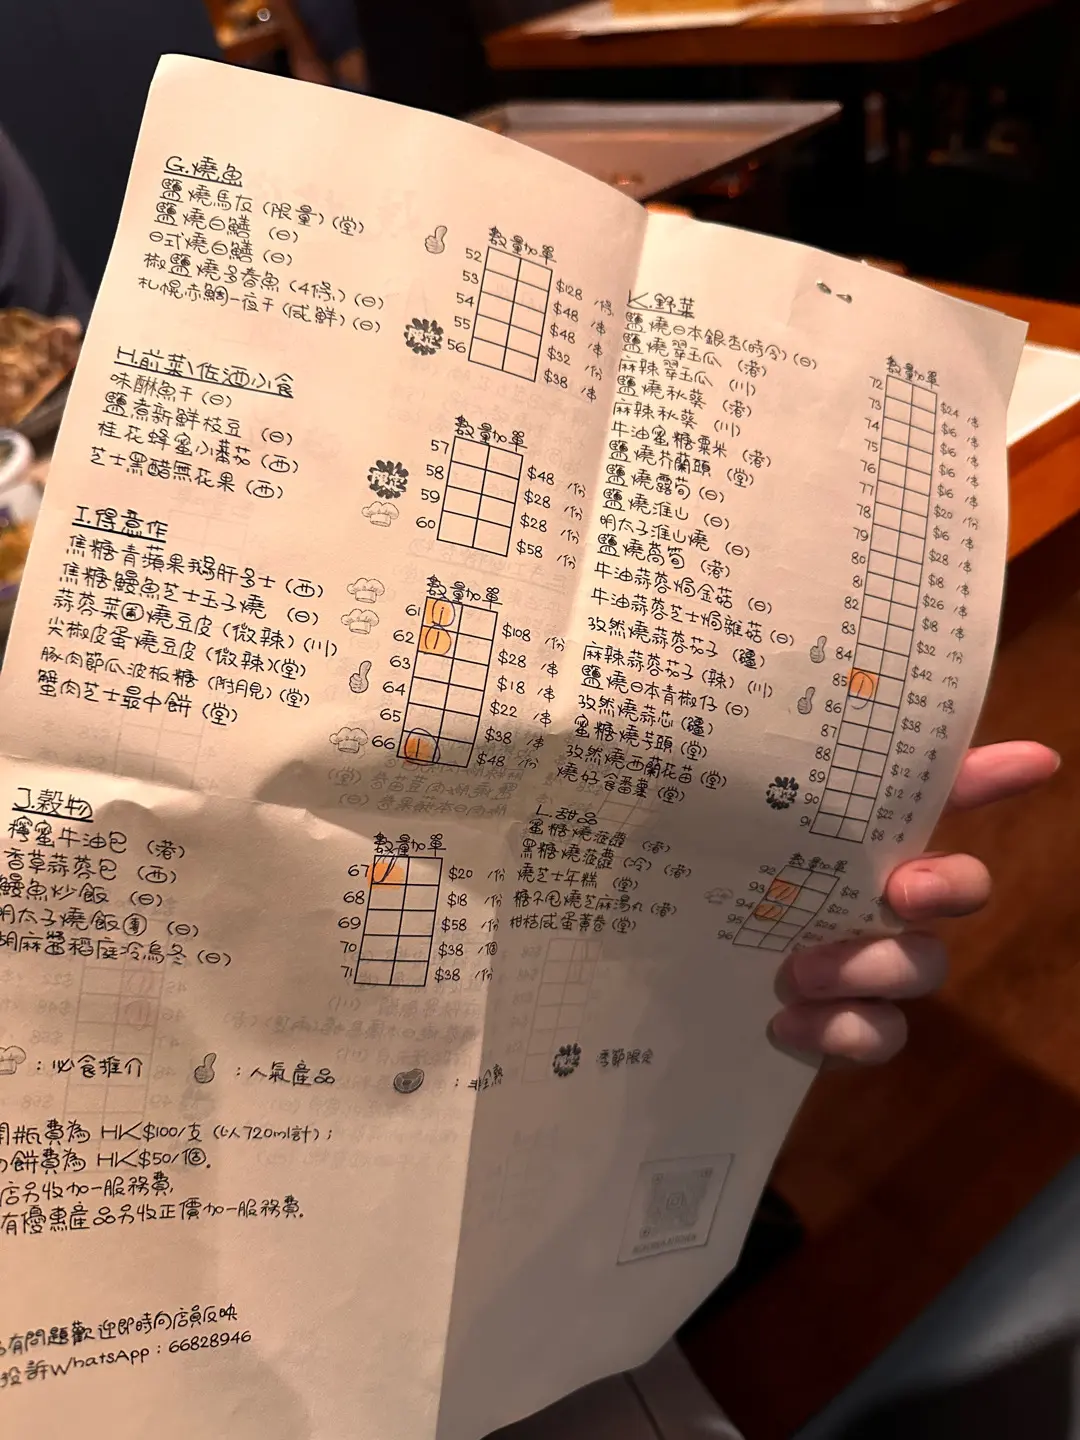 G.燒魚
鹽燒馬友(限量)(堂)
鹽燒白鱔 (日)
日式燒白鱔 (日)
椒鹽燒多春魚(4條)(日)
札幌赤鯛一夜干(咸鮮)(日)
數量加單
52 $128 /條
53 $48 /串
54 $48 /串
55 $32 /份
限定 56 $38 /串
H.前菜\佐酒小食
味醂魚干(日)
鹽煮新鮮枝豆 (日)
桂花蜂蜜小番茄 (西)
芝士黑醋無花果 (西)
數量加單
57 $48 /份
限定 58 $28 /份
59 $28 /份
60 $58 /份
I.得意作
焦糖青蘋果鵝肝多士(西)
焦糖鰻魚芝士玉子燒 (日)
蒜蓉菜圃燒豆皮(微辣)(川)
尖椒皮蛋燒豆皮(微辣)(堂)
豚肉節瓜波板糖(附月見)(堂)
蟹肉芝士最中餅(堂)
數量加單
61 $108 /份
62 $28 /串
63 $18 /串
64 $22 /串
65 $38 /串
66 $48 /串
J.穀物
檸蜜牛油包 (港)
香草蒜蓉包 (西)
鰻魚炒飯 (日)
明太子燒飯團 (日)
胡麻醬稻庭冷烏冬(日)
數量加單
67 $20 /份
68 $18 /份
69 $58 /份
70 $38 /個
71 $38 /份
K.野菜
鹽燒日本銀杏(時令)(日)
鹽燒翠玉瓜 (港)
麻辣翠玉瓜 (川)
鹽燒秋葵 (港)
麻辣秋葵 (川)
牛油蜜糖粟米 (港)
鹽燒芥蘭頭 (堂)
鹽燒露筍 (日)
鹽燒淮山 (日)
明太子淮山燒 (日)
鹽燒萵筍 (港)
牛油蒜蓉焗金菇 (日)
牛油蒜蓉芝士焗雜菇(日)
孜然燒蒜蓉茄子(疆)
麻辣蒜蓉茄子(辣)(川)
鹽燒日本青椒仔 (日)
孜然燒蒜芯(疆)
蜜糖燒芋頭(堂)
孜然燒西蘭花苗(堂)
燒好食番薯 (堂)
數量加單
72 $24 /串
73 $16 /串
74 $16 /串
75 $16 /串
76 $16 /串
77 $20 /份
78 $16 /串
79 $28 /串
80 $18 /串
81 $26 /串
82 $18 /串
83 $32 /份
84 $42 /份
85 $38 /條
86 $38 /條
87 $20 /串
88 $12 /串
89 $12 /串
限定 90 $22 /串
91 $8 /串
L.甜品
蜜糖燒菠蘿 (港)
黑糖燒菠蘿(冷)(港)
燒芝士年糕 (堂)
糖不甩燒芝麻湯丸(港)
柑桔咸蛋黃卷(堂)
數量加單
92 $18
93 $20
94
95
96
:必食推介
:人氣產品
季節限定
開瓶費為 HK$100/支 (以720ml計);
餅費為 HK$50/個.
店另收加一服務費,
有優惠產品另收正價加一服務費.
有問題歡迎即時向店員反映
投訴WhatsApp:66828946